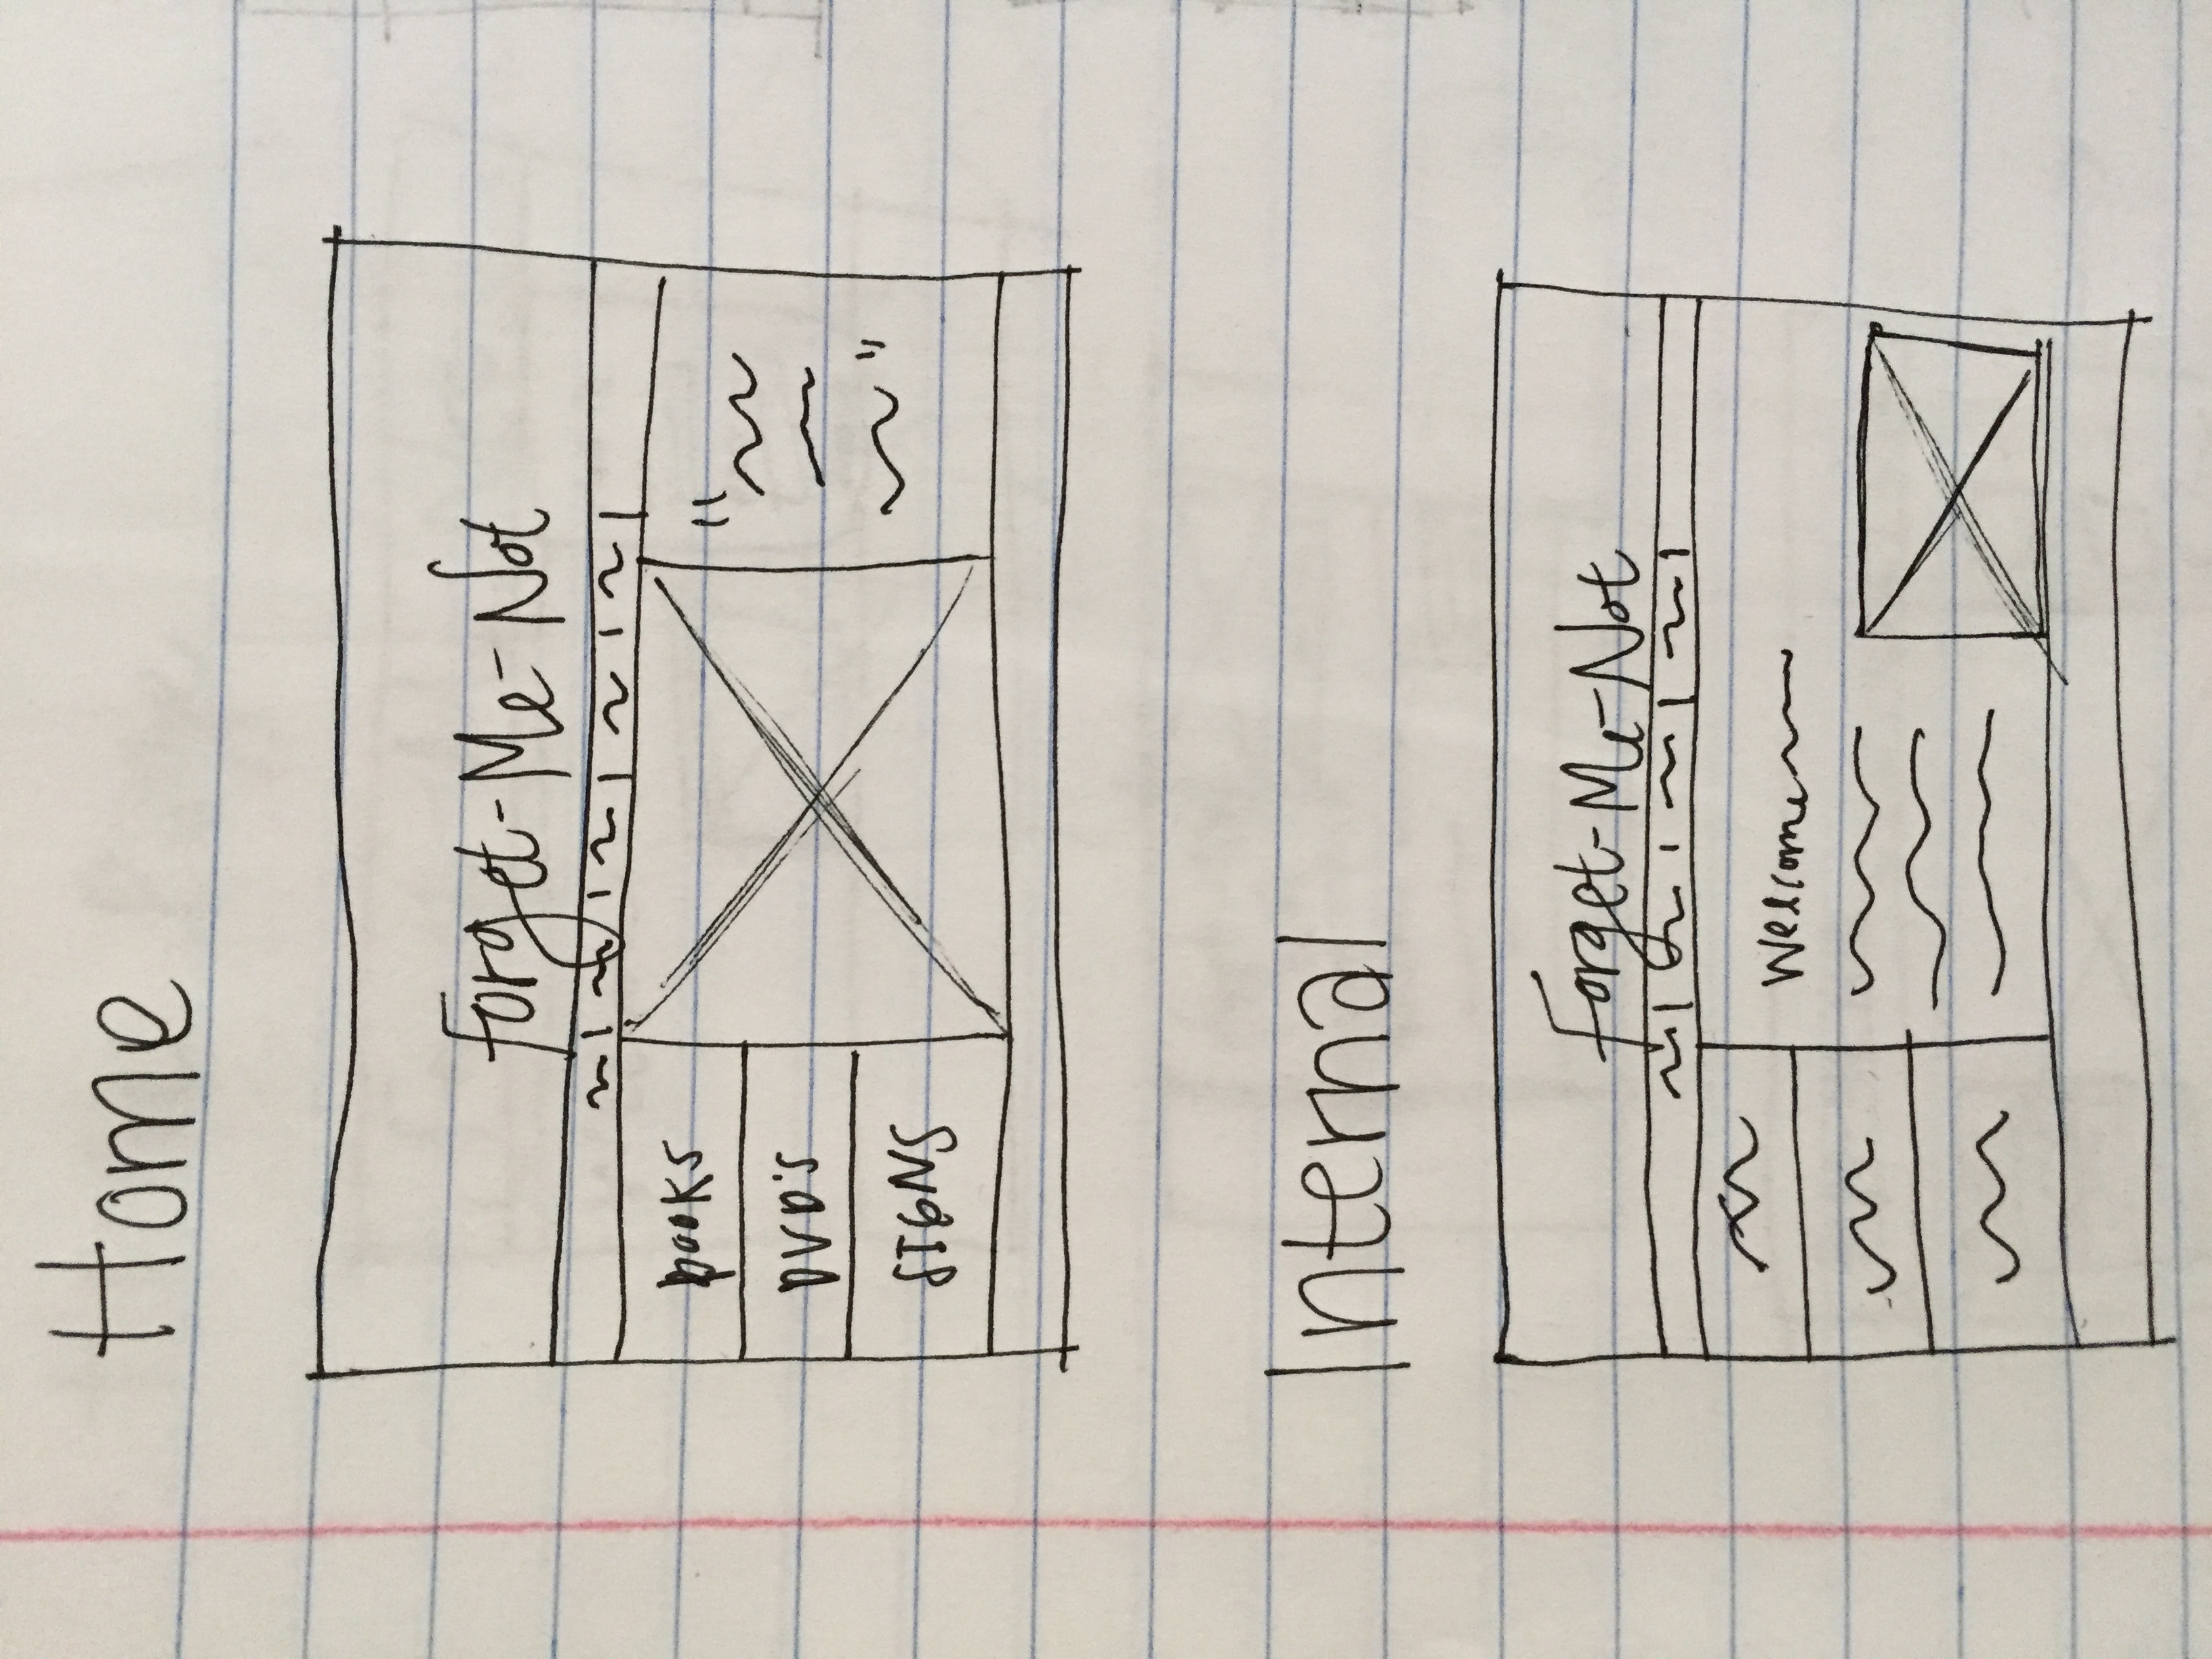 Home
Forget-Me-Not
BOOKS
DVD'S
SIGNS
"
"
Internal
Forget-Me-Not
Welcome